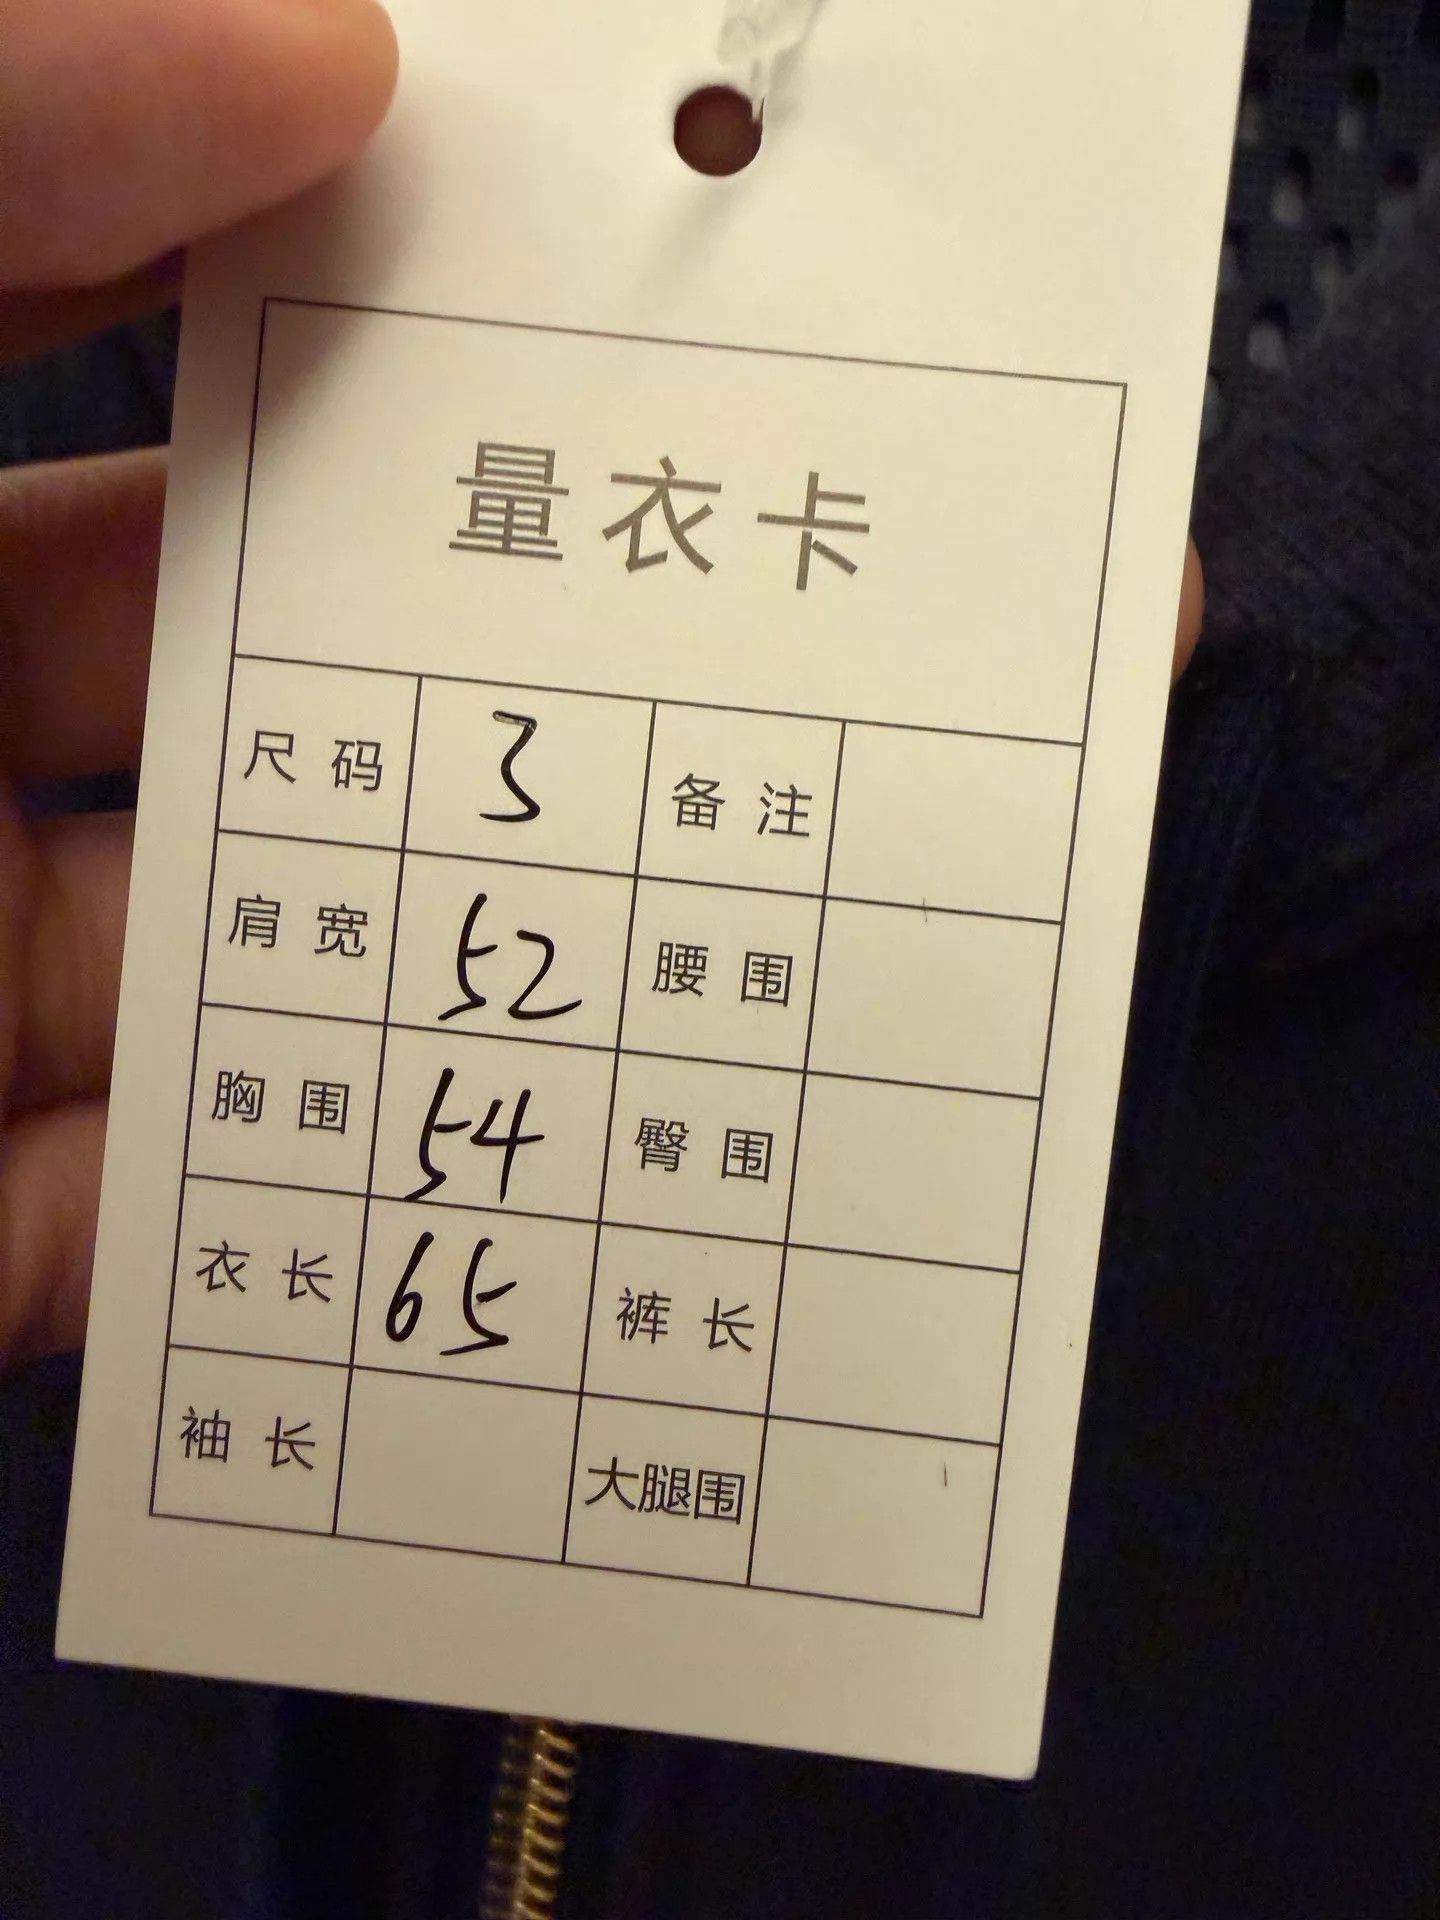 量衣卡
尺码 3 备注
肩宽 52 腰围
胸围 54 臀围
衣长 65 裤长
袖长 大腿围